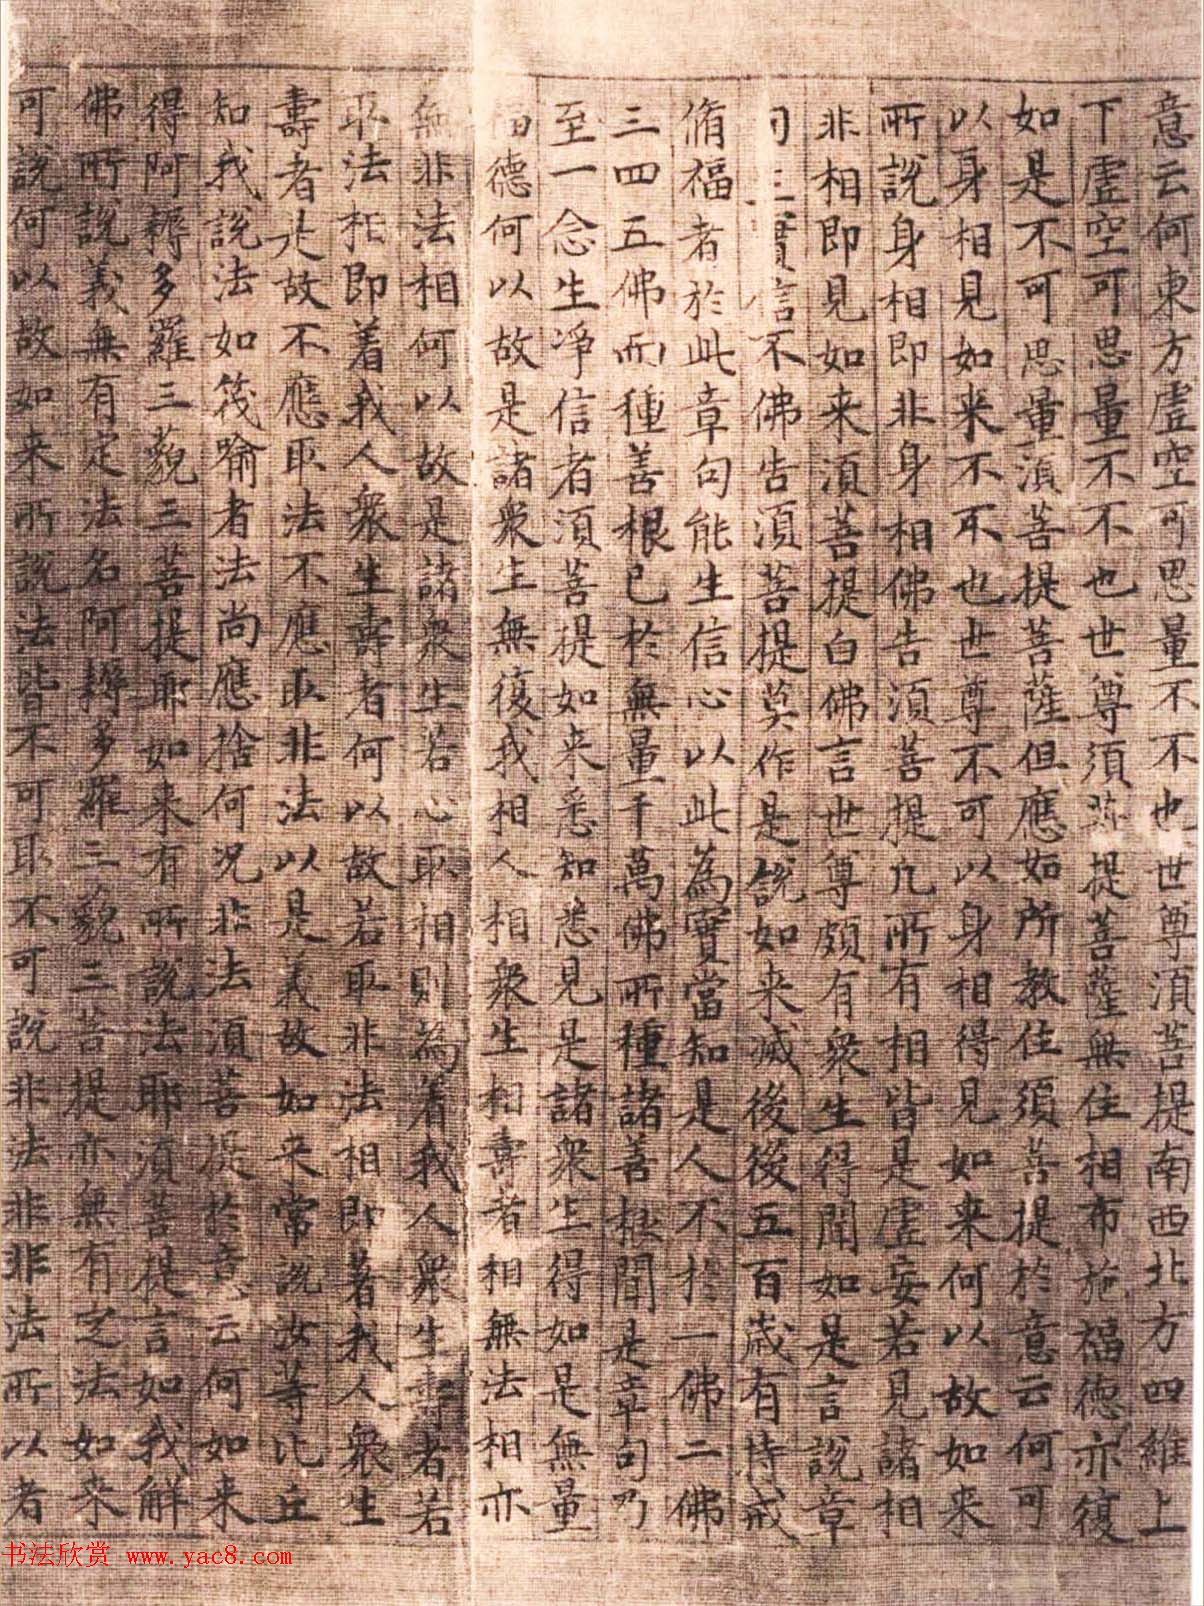 意云何東方虛空可思量不不也世尊須菩提南西北方四維上
下虛空可思量不不也世尊須菩提菩薩無住相布施福德亦復
如是不可思量須菩提菩薩但應如所教住須菩提於意云何可
以身相見如来不不也世尊不可以身相得見如来何以故如来
所說身相即非身相佛告須菩提凡所有相皆是虛妄若見諸相
非相即見如来須菩提白佛言世尊頗有衆生得聞如是言說章
句生實信不佛告須菩提莫作是說如来滅後後五百歲有持戒
脩福者於此章句能生信心以此為實當知是人不於一佛二佛
三四五佛而種善根已於無量千萬佛所種諸善根聞是章句乃
至一念生淨信者須菩提如来悉知悉見是諸衆生得如是無量
福德何以故是諸衆生無復我相人相衆生相壽者相無法相亦
無非法相何以故是諸衆生若心取相則為着我人衆生壽者若
取法相即着我人衆生壽者何以故若取非法相即著我人衆生
壽者是故不應取法不應取非法以是義故如来常說汝等比丘
知我說法如筏喻者法尚應捨何況非法須菩提於意云何如来
得阿耨多羅三藐三菩提耶如来有所說法耶須菩提言如我解
佛所說義無有定法名阿耨多羅三藐三菩提亦無有定法如来
可說何以故如来所說法皆不可取不可說非法非非法所以者
书法欣赏 www.yac8.com